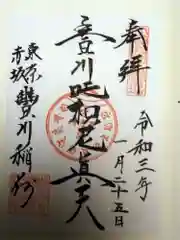 奉拝
令和三年
一月二十五日
豊川吒枳尼真天
東京
赤坂
豊川稲荷